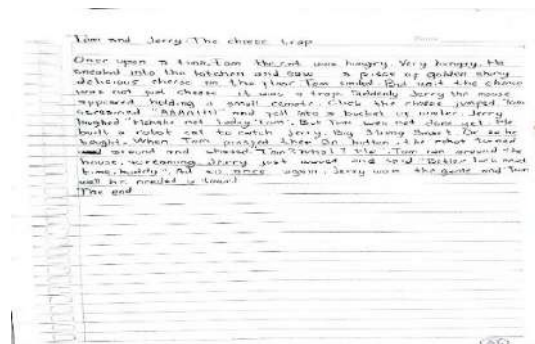 Tom and Jerry: The cheese trap
Once upon a time, Tom the cat was hungry. Very hungry. He
sneaked into the kitchen and saw a piece of golden shiny
delicious cheese on the floor. Tom smiled. But wait the cheese
was not just cheese it was a trap. Suddenly Jerry the mouse
appeared, holding a small remote. Click the cheese jumped Tom
screamed "AAAAHHH" and fell into a bucket of water. Jerry
laughed not today Tom". But Tom was not done yet. He
built a robot cat to catch Jerry. Big Strong Smart Or so he
thought. When Tom pressed the On button, the robot turned
around and chased Tom? What? Tom ran around the
house, screaming Jerry just waved and said "Better luck next
time, buddy". And so once again, Jerry won the game and Tom
well he needed a towel
The end